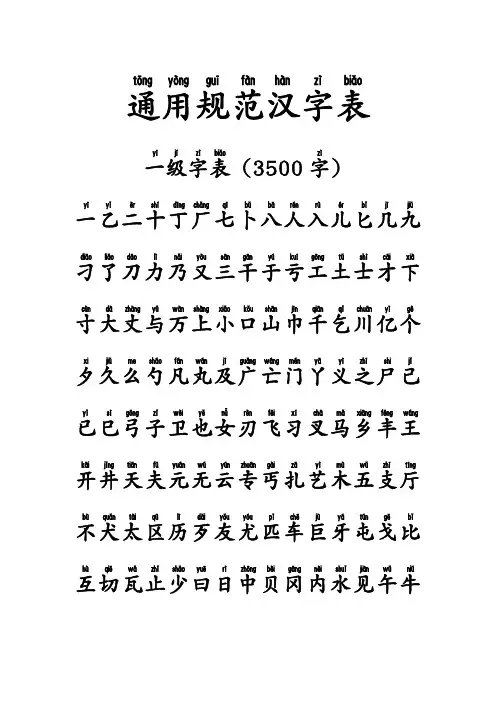 tōng yòng guī fàn hàn zì biǎo
通用规范汉字表
yī jí zì biǎo zì
一级字表（3500字）
yī yǐ èr shí dīng chǎng qī bǔ bā rén rù ér bǐ jǐ jiǔ
一乙二十丁厂七卜八人入儿匕几九
diāo liǎo dāo lì nǎi yòu sān gān yú kuī gōng tǔ shì cái xià
刁了刀力乃又三干于亏工土士才下
cùn dà zhàng yǔ wàn shàng xiǎo kǒu shān jīn qiān qǐ chuān yì gè
寸大丈与万上小口山巾千乞川亿个
xī jiǔ me sháo fán wán jí guǎng wáng mén yā yì zhī shī jǐ
夕久么勺凡丸及广亡门丫义之尸己
yǐ sì gōng zǐ wèi yě nǚ rèn fēi xí chā mǎ xiāng fēng wáng
已巳弓子卫也女刃飞习叉马乡丰王
kāi jǐng tiān fū yuán wú yún zhuān gài zā yì mù wǔ zhī tīng
开井天夫元无云专丐扎艺木五支厅
bù quǎn tài qū lì dǎi yǒu yóu pǐ chē jù yá tún gē bǐ
不犬太区历歹友尤匹车巨牙屯戈比
hù qiē wǎ zhǐ shǎo yuē rì zhōng bèi gāng nèi shuǐ jiàn wǔ niú
互切瓦止少曰日中贝冈内水见午牛